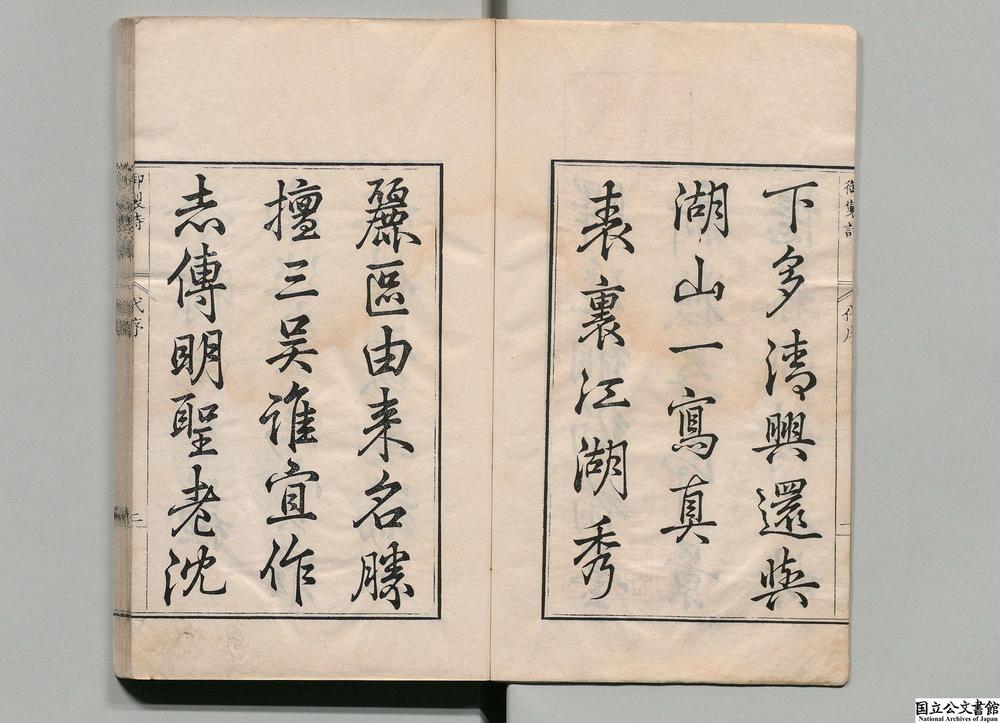 下多清興還與
湖山一寫真
表裏江湖秀
麗區由来名勝
擅三吴誰宜作
志傳明聖老沈
御製詩
代序
二
国立公文書館
National Archives of Japan